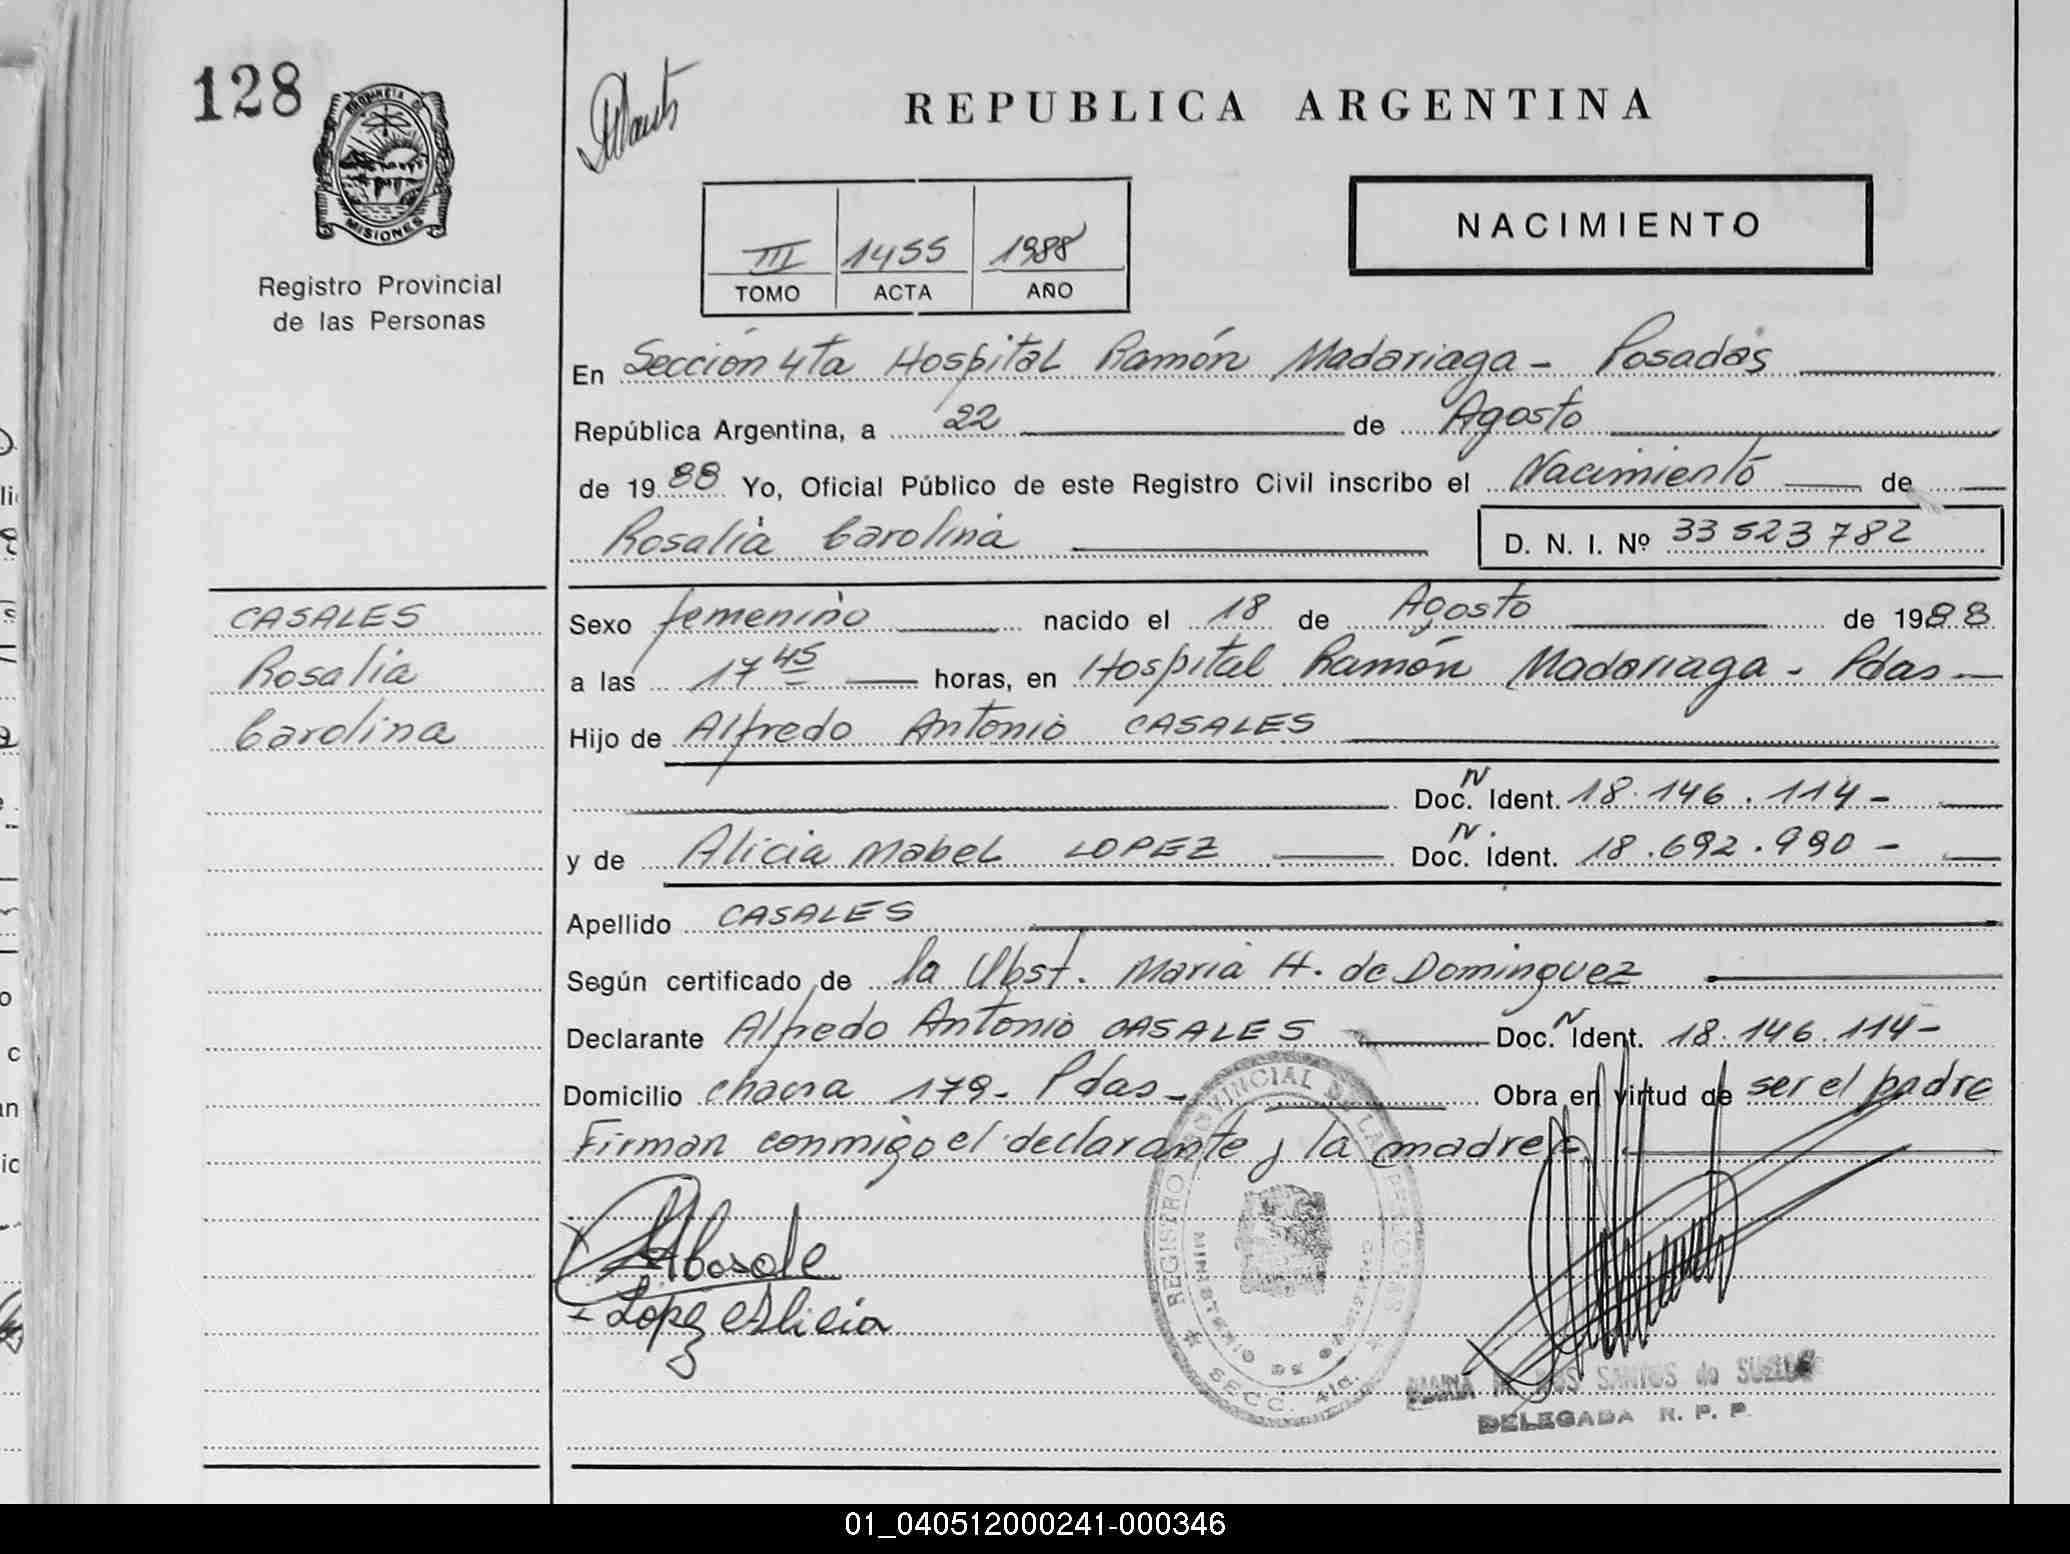 128
PROVINCIA DE
MISIONES
Registro Provincial
de las Personas
REPUBLICA ARGENTINA
NACIMIENTO
III 1455 1988
TOMO ACTA AÑO
En Sección 4ta Hospital Ramón Madariaga - Posadas
República Argentina, a 22 de Agosto
de 1988 Yo, Oficial Público de este Registro Civil inscribo el Nacimiento de
Rosalia Carolina D. N. I. Nº 33523782
CASALES
Rosalia
Carolina
Sexo femenino nacido el 18 de Agosto de 1988
a las 17 45 horas, en Hospital Ramón Madariaga - Pdas
Hijo de Alfredo Antonio CASALES
Doc. N Ident. 18.146.114-
y de Alicia Mabel LOPEZ Doc. N. Ident. 18.692.990-
Apellido CASALES
Según certificado de la Obst. Maria H. de Dominguez
Declarante Alfredo Antonio CASALES Doc. N Ident. 18.146.114-
Domicilio chacra 179- Pdas- Obra en virtud de ser el padre
Firman conmigo el declarante y la madre
Lopez Alicia
REGISTRO PROVINCIAL DE LAS PERSONAS
MINISTERIO DE
SECC. 4ta.
SANTOS de
DELEGADA R. P. P.
01_040512000241-000346